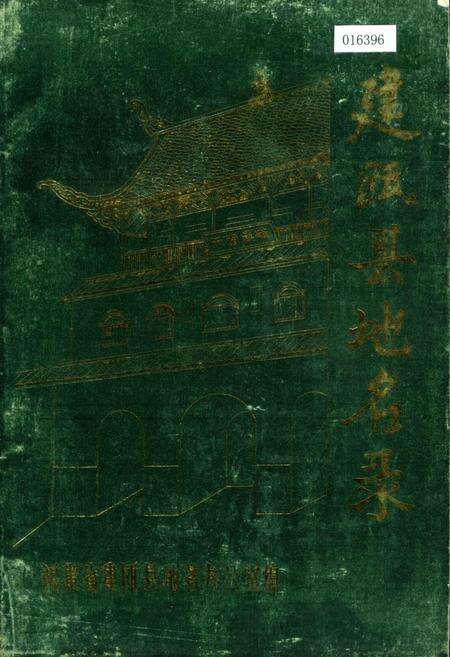 016396
建瓯县地名录
福建省建瓯县地名办公室编